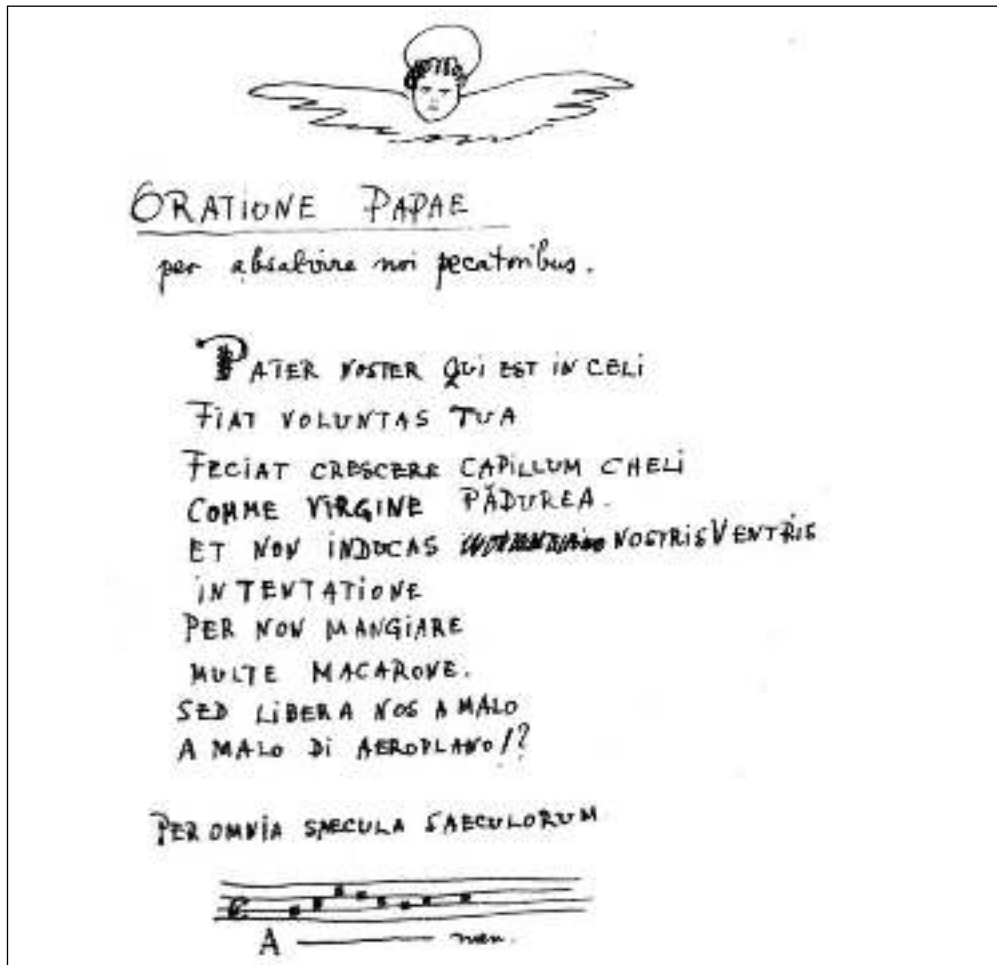 ORATIONE PAPAE
per absalvire noi pecatoribus.
PATER NOSTER QUI EST IN CELI
FIAT VOLUNTAS TUA
FECIAT CRESCERE CAPILLUM CHELI
COMME VIRGINE PĂDUREA.
ET NON INDUCAS NOSTRIS VENTRIS
IN TENTATIONE
PER NON MANGIARE
MULTE MACARONE.
SED LIBERA NOS A MALO
A MALO DI AEROPLANO!?
PER OMNIA SAECULA SAECULORUM
A——men.